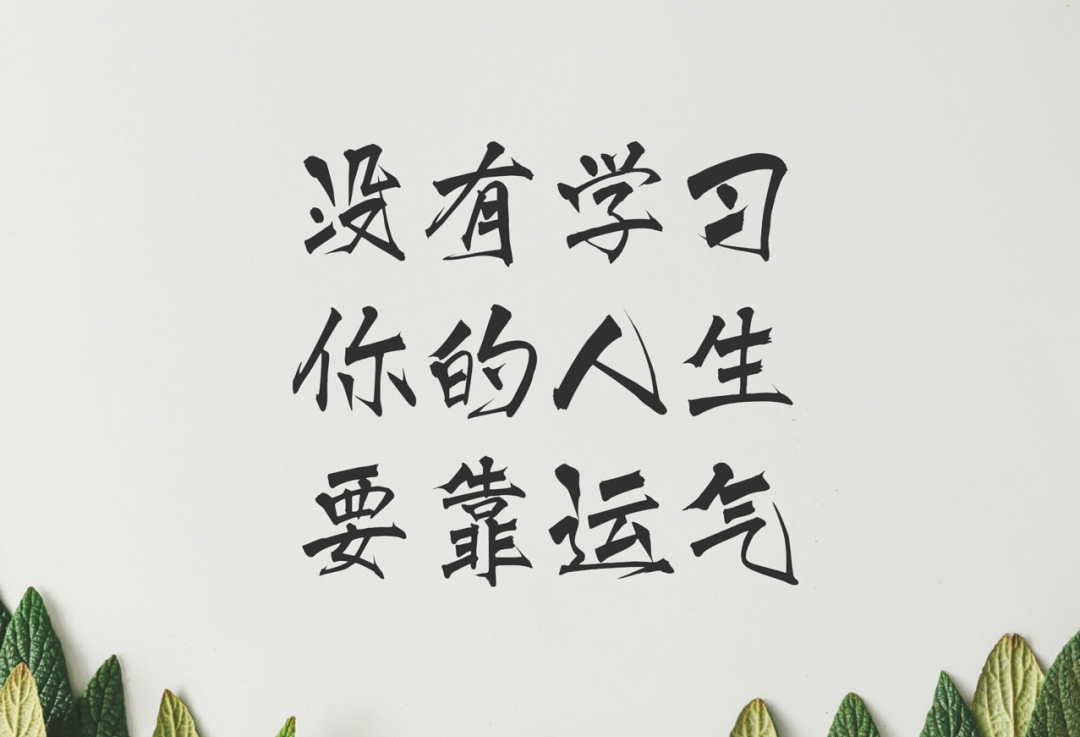 没有学习
你的人生
要靠运气